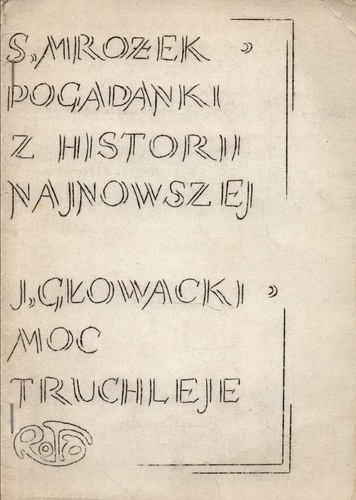 S. MROŻEK
POGADANKI
Z HISTORII
NAJNOWSZEJ
J. GŁOWACKI
MOC
TRUCHLEJE